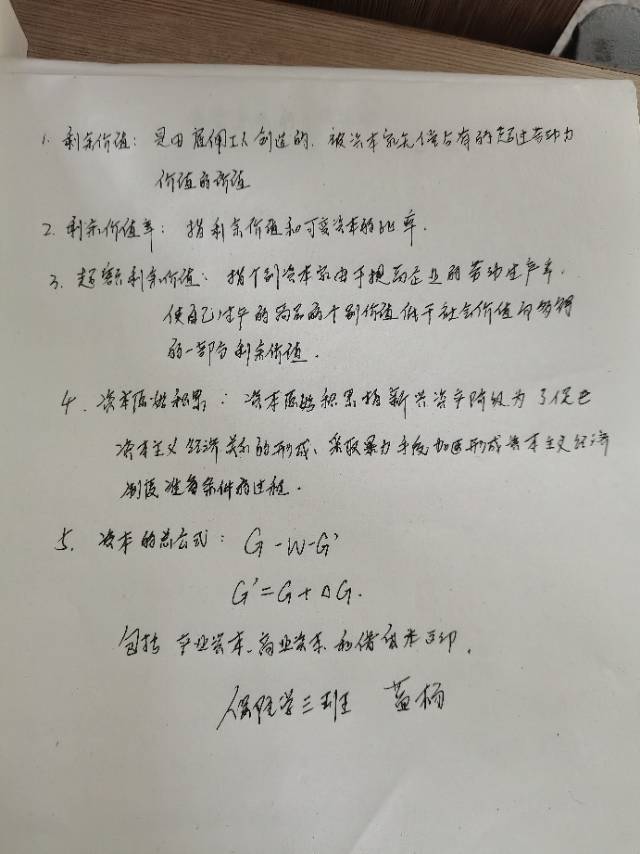 1. 剩余价值：是由雇佣工人创造的，被资本家无偿占有的超过劳动力
价值的价值
2. 剩余价值率：指剩余价值和可变资本的比率.
3. 超额剩余价值：指个别资本家由于提高企业的劳动生产率，
使自己生产的商品的个别价值低于社会价值而多得
的一部分剩余价值.
4. 资本原始积累：资本原始积累指新兴资产阶级为了促进
资本主义经济关系的形成、采取暴力手段加速形成资本主义经济
制度准备条件的过程.
5. 资本的总公式：G-W-G'
G'=G+△G.
包括 产业资本、商业资本和借贷
保险学三班 蓝杨